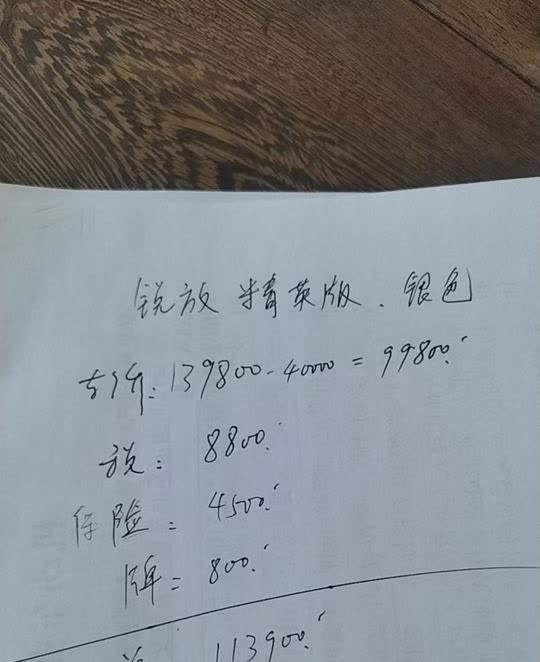 锐放 精英版. 银色
车价: 139800-40000 = 99800.
税: 8800.
保险: 4500.
牌: 800.
113900.